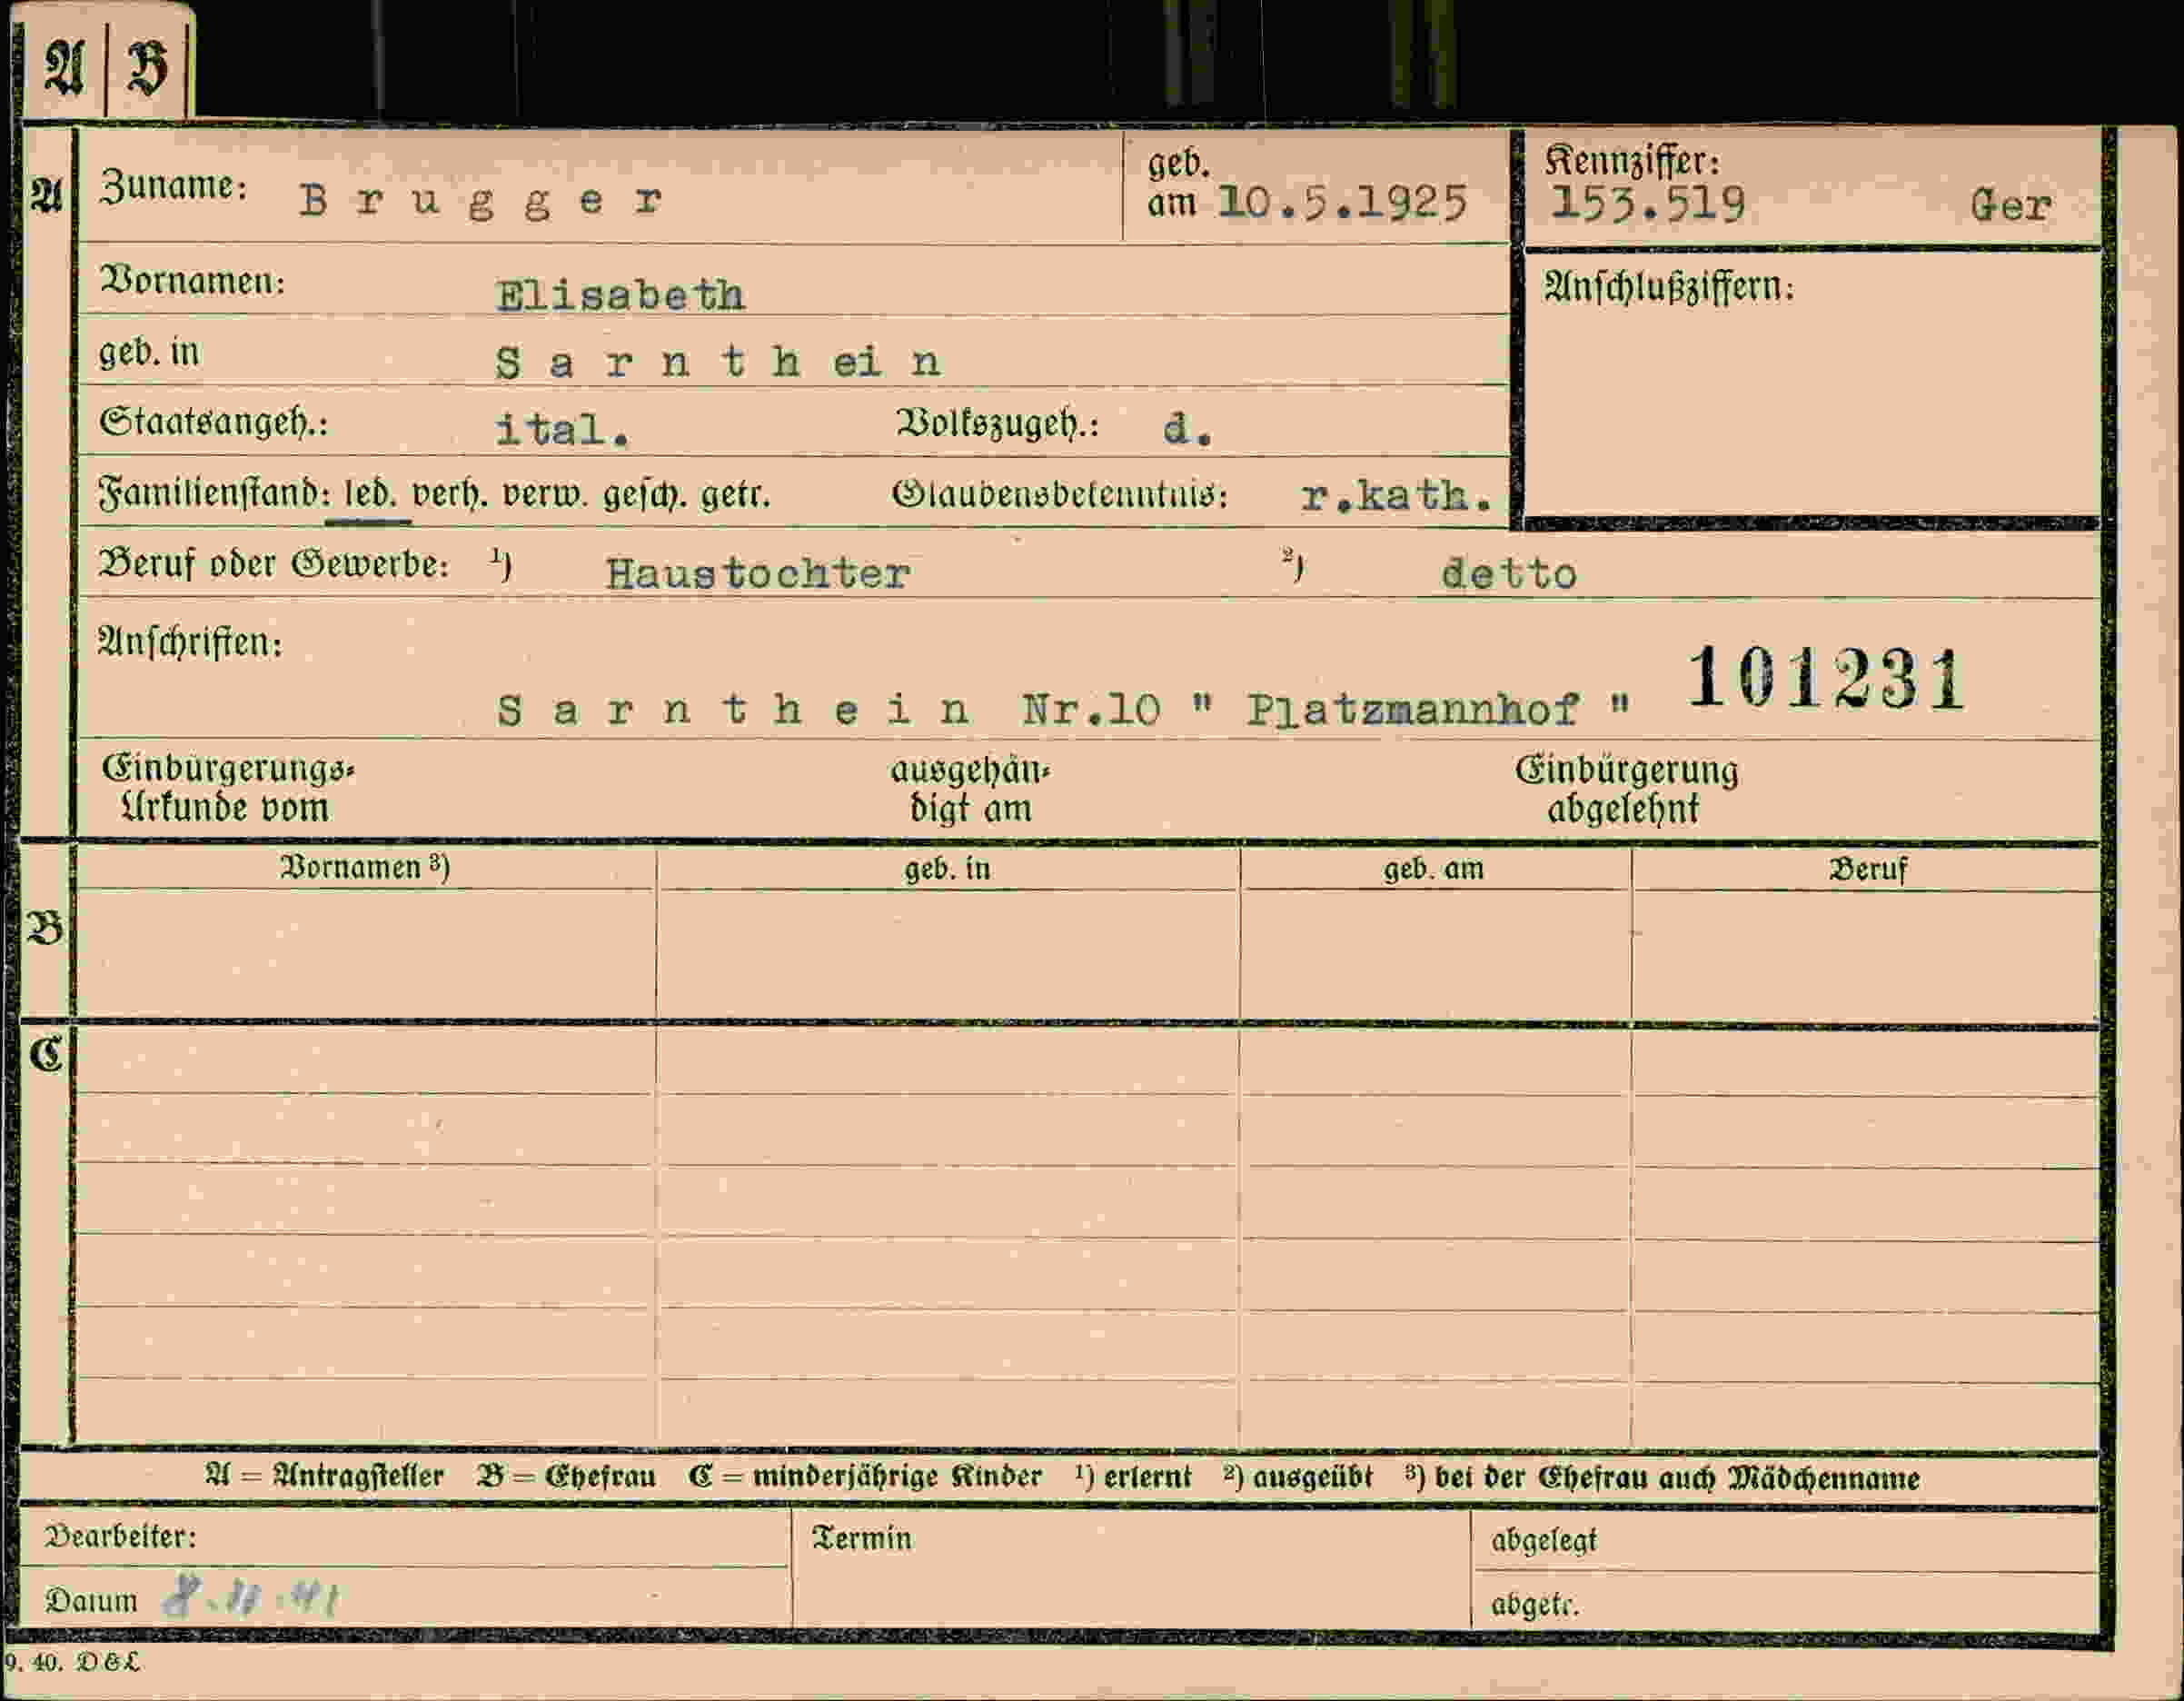 A B
A Zuname: Brugger geb. am 10.5.1925 Kennziffer: 153.519 Ger
Vornamen: Elisabeth Anschlußziffern:
geb. in Sarnthein
Staatsangeh.: ital. Volkszugeh.: d.
Familienstand: led. verh. verw. gesch. getr. Glaubensbekenntnis: r.kath.
Beruf oder Gewerbe: ¹) Haustochter ²) detto
Anschriften: 101231
Sarnthein Nr.10 " Platzmannhof "
Einbürgerungs- ausgehän- Einbürgerung
Urkunde vom digt am abgelehnt
Vornamen ³) geb. in geb. am Beruf
B
C
A = Antragsteller B = Ehefrau C = minderjährige Kinder ¹) erlernt ²) ausgeübt ³) bei der Ehefrau auch Mädchenname
Bearbeiter: Termin abgelegt
Datum 8.11.41 abgetr.
9. 40. D&L